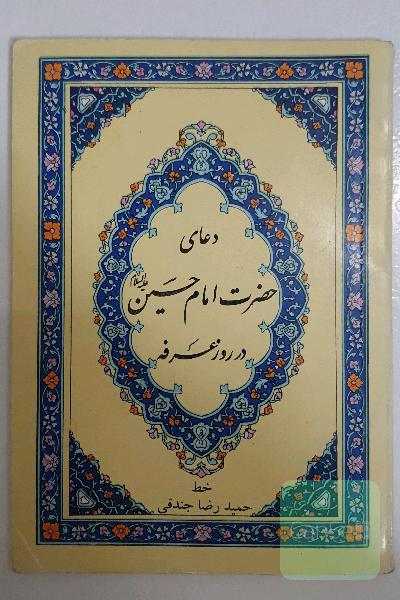 دعای
حضرت امام حسین علیه‌السلام
در روز عرفه
خط
حمید رضا جندقی